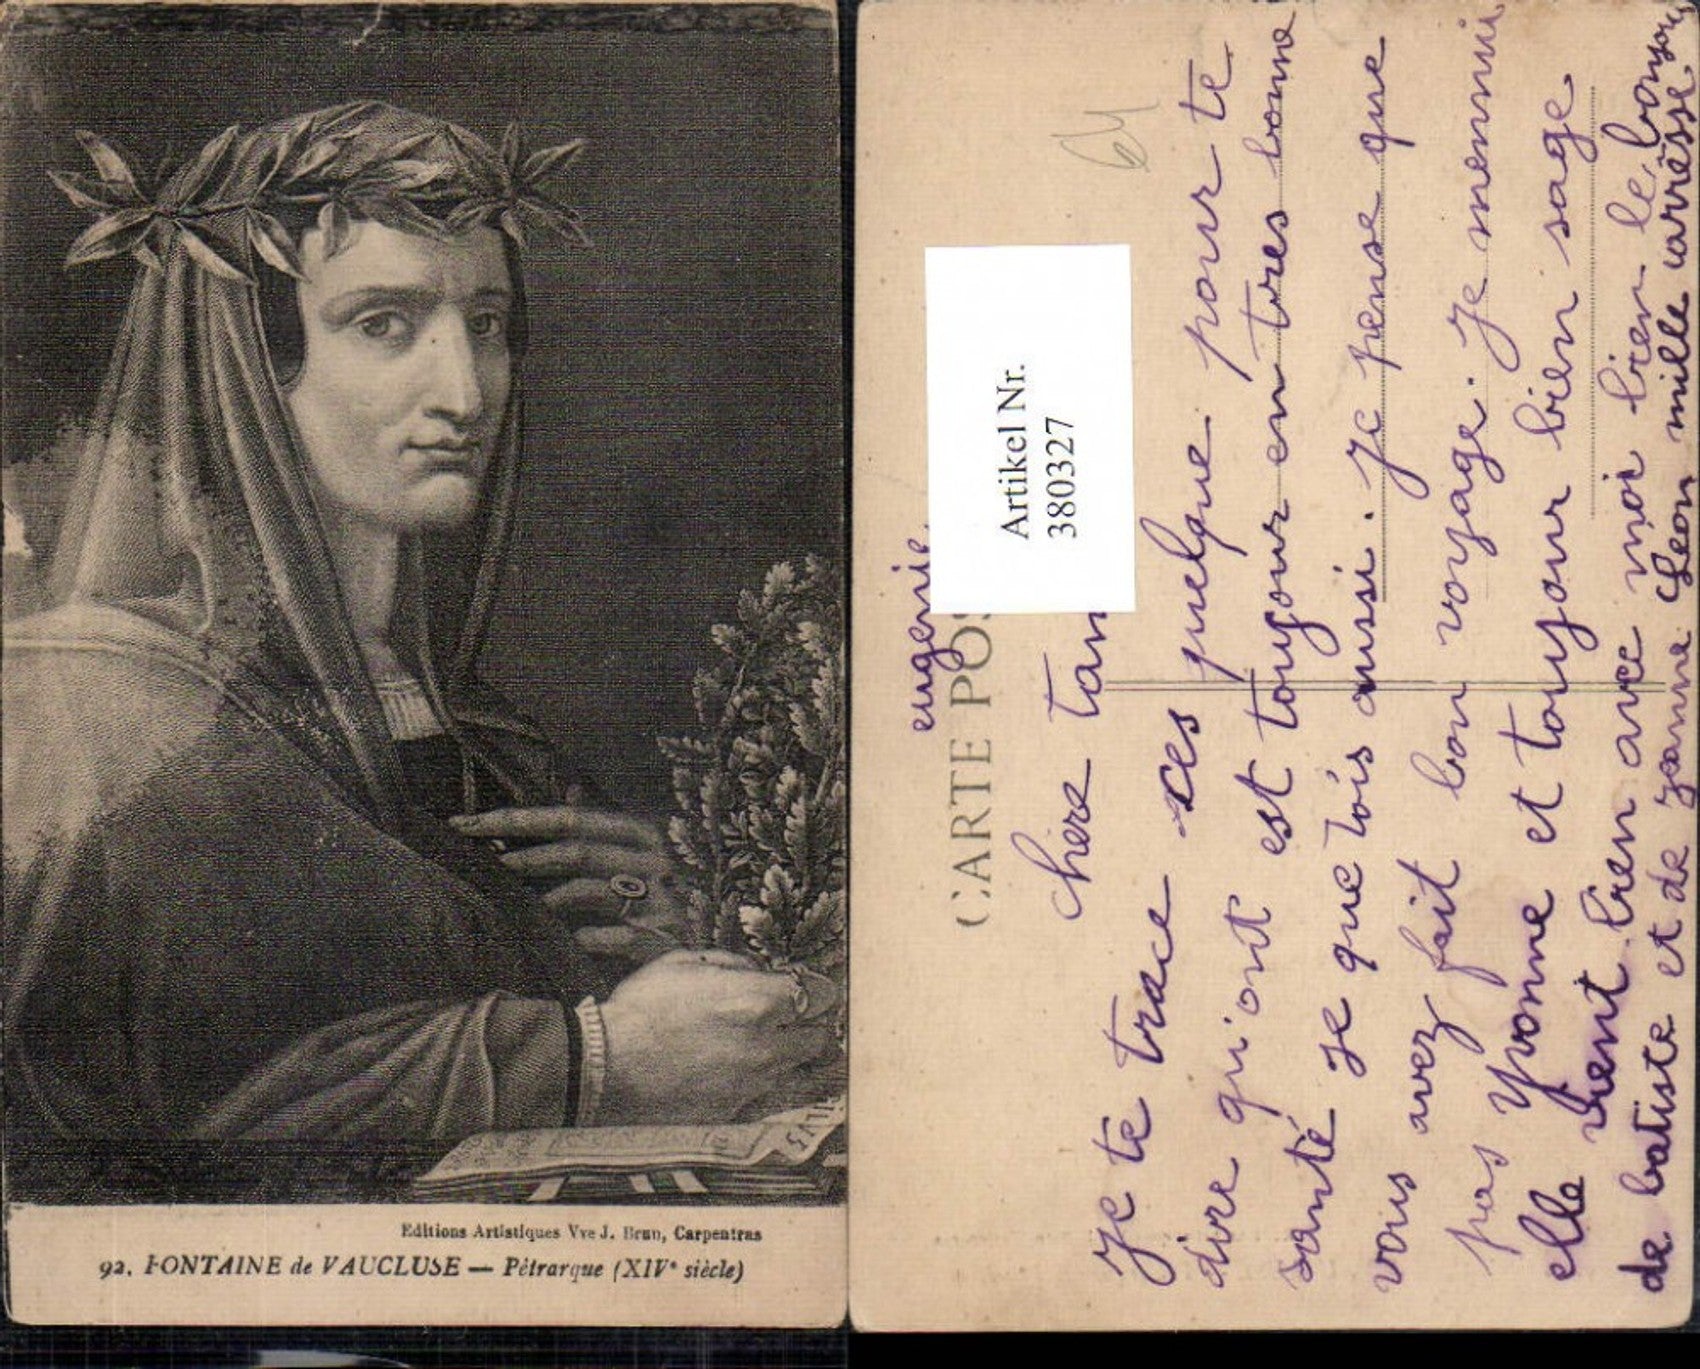 Editions Artistiques Vve J. Brun, Carpentras
92. FONTAINE de VAUCLUSE — Pétrarque (XIVe siècle)
CARTE POS
Artikel Nr.
380327
eugenie
chere tan
je te trace ces quelque pour te
dire qu'ont est toujour en tres bonne
santé je que tois aussi. je pense que
vous avez fait bon voyage. je mennui
pas yvonne et toujour bien sage
elle vient bien avec moi bien le bonjour
de batiste et de jeanne Leon mille carrèsse